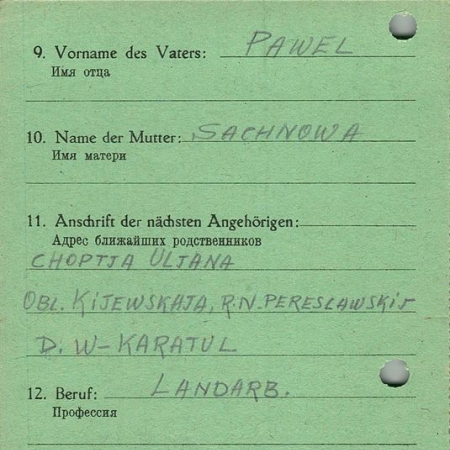 9. Vorname des Vaters: PAWEL
Имя отца
10. Name der Mutter: SACHNOWA
Имя матери
11. Anschrift der nächsten Angehörigen:
Адрес ближайших родственников
CHOPTJA ULJANA
OBL. KIJEWSKAJA, R.N. PERESLAWSKIJ
D. W-KARATUL
12. Beruf: LANDARB.
Профессия